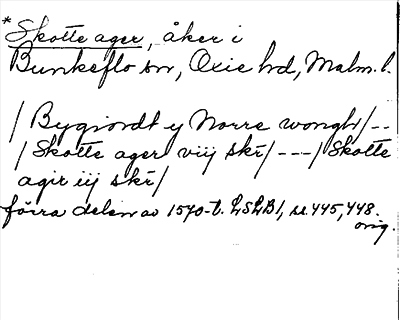 *Skotte ager, åker i
Bunkeflo sn, Oxie hd, Malm. l.
/ Bygiordt y Norre wongh/ --
/ Skotte ager viij skr/ --- / Skotte
agir iij skr/
förra delen av 1570-t. LSLB1, s. 445, 448.
orig.